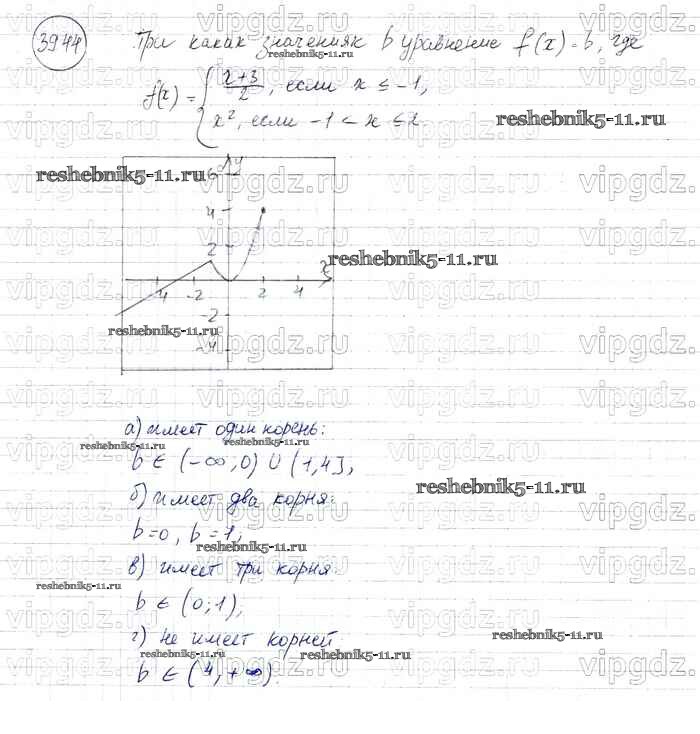 3944
При каких значениях b уравнение f(x)=b, где
f(x) = { x+3/2, если x ≤ -1,
x², если -1 < x ≤ 2
reshebnik5-11.ru
y
6
4
2
x
-4 -2 2 4
-2
-4
а) имеет один корень:
b ∈ (-∞,0) ∪ (1,4],
б) имеет два корня:
b=0, b=1,
в) имеет три корня:
b ∈ (0;1),
г) не имеет корней
b ∈ (4,+∞).
reshebnik5-11.ru
vipgdz.ru